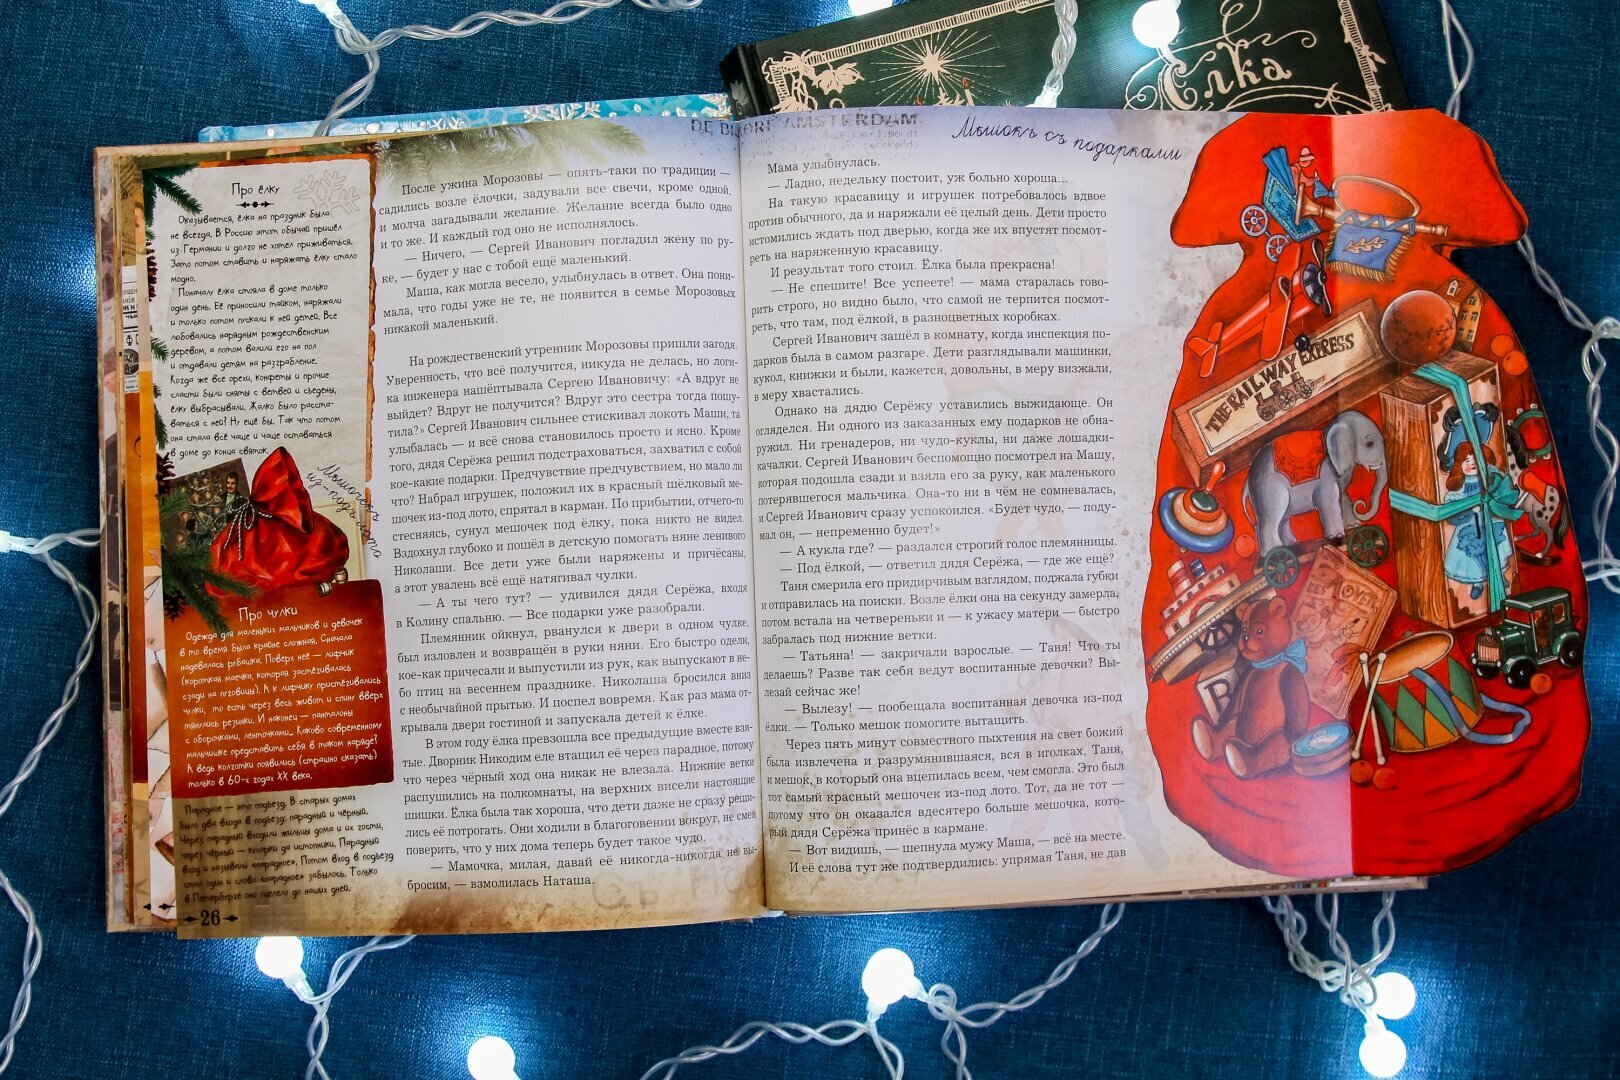 Ёлка
DE AMSTERDAM
Мѣшокъ съ подарками
Про ёлку
Оказывается, ёлка на праздник была
не всегда. В Россию этот обычай пришёл
из Германии и долго не хотел приживаться.
Зато потом ставить и наряжать ёлку стало
модно.
Поначалу ёлка стояла в доме только
один день. Её приносили тайком, наряжали
и только потом пускали к ней детей. Все
любовались нарядным рождественским
деревом, а потом валили его на пол
и отдавали детям на разграбление.
Когда же все орехи, конфеты и прочие
сласти были сняты с ветвей и съедены,
ёлку выбрасывали. Жалко было расста-
ваться с ней! Ну ещё бы. Так что потом
она стала всё чаще и чаще оставаться
в доме до конца святок.
Мѣшочекъ
из-подъ лото
Про чулки
Одежда для маленьких мальчиков и девочек
в то время была крайне сложная. Сначала
надевалась рубашка. Поверх неё — лифчик
(короткая маечка, которая застёгивалась
сзади на пуговицы). А к лифчику пристёгивались
чулки, то есть через весь живот и спину вверх
тянулись резинки. И наконец — панталоны
с оборочками, ленточками... Каково современному
мальчишке представить себя в таком наряде?
А ведь колготки появились (страшно сказать)
только в 60-х годах XX века.
Парадное — это подъезд. В старых домах
было два входа в подъезд: парадный и чёрный.
Через парадный входили жильцы дома и их гости,
через чёрный — кухарки да истопники. Парадный
вход и называли «парадное». Потом вход в подъезд
стал один и слово «парадное» забылось. Только
в Петербурге оно уцелело до наших дней.
26
После ужина Морозовы — опять-таки по традиции —
садились возле ёлочки, задували все свечи, кроме одной,
и молча загадывали желание. Желание всегда было одно
и то же. И каждый год оно не исполнялось.
— Ничего, — Сергей Иванович погладил жену по ру-
ке, — будет у нас с тобой ещё маленький.
Маша, как могла весело, улыбнулась в ответ. Она пони-
мала, что годы уже не те, не появится в семье Морозовых
никакой маленький.
На рождественский утренник Морозовы пришли загодя.
Уверенность, что всё получится, никуда не делась, но логи-
ка инженера нашёптывала Сергею Ивановичу: «А вдруг не
выйдет? Вдруг не получится? Вдруг это сестра тогда пошу-
тила?» Сергей Иванович сильнее стискивал локоть Маши, та
улыбалась — и всё снова становилось просто и ясно. Кроме
того, дядя Серёжа решил подстраховаться, захватил с собой
кое-какие подарки. Предчувствие предчувствием, но мало ли
что? Набрал игрушек, положил их в красный шёлковый ме-
шочек из-под лото, спрятал в карман. По прибытии, отчего-то
стесняясь, сунул мешочек под ёлку, пока никто не видел.
Вздохнул глубоко и пошёл в детскую помогать няне ленивого
Николаши. Все дети уже были наряжены и причёсаны,
а этот увалень всё ещё натягивал чулки.
— А ты чего тут? — удивился дядя Серёжа, входя
в Колину спальню. — Все подарки уже разобрали.
Племянник ойкнул, рванулся к двери в одном чулке,
был изловлен и возвращён в руки няни. Его быстро одели,
кое-как причесали и выпустили из рук, как выпускают в не-
бо птиц на весеннем празднике. Николаша бросился вниз
с необычайной прытью. И поспел вовремя. Как раз мама от-
крывала двери гостиной и запускала детей к ёлке.
В этом году ёлка превзошла все предыдущие вместе взя-
тые. Дворник Никодим еле втащил её через парадное, потому
что через чёрный ход она никак не влезала. Нижние ветки
распушились на полкомнаты, на верхних висели настоящие
шишки. Ёлка была так хороша, что дети даже не сразу реши-
лись её потрогать. Они ходили в благоговении вокруг, не смея
поверить, что у них дома теперь будет такое чудо.
— Мамочка, милая, давай её никогда-никогда не вы-
бросим, — взмолилась Наташа.
Мама улыбнулась.
— Ладно, недельку постоит, уж больно хороша...
На такую красавицу и игрушек потребовалось вдвое
против обычного, да и наряжали её целый день. Дети просто
истомились ждать под дверью, когда же их впустят посмот-
реть на наряженную красавицу.
И результат того стоил. Ёлка была прекрасна!
— Не спешите! Все успеете! — мама старалась гово-
рить строго, но видно было, что самой не терпится посмот-
реть, что там, под ёлкой, в разноцветных коробках.
Сергей Иванович зашёл в комнату, когда инспекция по-
дарков была в самом разгаре. Дети разглядывали машинки,
кукол, книжки и были, кажется, довольны, в меру визжали,
в меру хвастались.
Однако на дядю Серёжу уставились выжидающе. Он
огляделся. Ни одного из заказанных ему подарков не обна-
ружил. Ни гренадеров, ни чудо-куклы, ни даже лошадки-
качалки. Сергей Иванович беспомощно посмотрел на Машу,
которая подошла сзади и взяла его за руку, как маленького
потерявшегося мальчика. Она-то ни в чём не сомневалась,
и Сергей Иванович сразу успокоился. «Будет чудо, — поду-
мал он, — непременно будет!»
— А кукла где? — раздался строгий голос племянницы.
— Под ёлкой, — ответил дядя Серёжа, — где же ещё?
Таня смерила его придирчивым взглядом, поджала губки
и отправилась на поиски. Возле ёлки она на секунду замерла,
потом встала на четвереньки и — к ужасу матери — быстро
забралась под нижние ветки.
— Татьяна! — закричали взрослые. — Таня! Что ты
делаешь? Разве так себя ведут воспитанные девочки? Вы-
лезай сейчас же!
— Вылезу! — пообещала воспитанная девочка из-под
ёлки. — Только мешок помогите вытащить.
Через пять минут совместного пыхтения на свет божий
была извлечена и разрумянившаяся, вся в иголках, Таня,
и мешок, в который она вцепилась всем, чем смогла. Это был
тот самый красный мешочек из-под лото. Тот, да не тот —
потому что он оказался вдесятеро больше мешочка, кото-
рый дядя Серёжа принёс в кармане.
— Вот видишь, — шепнула мужу Маша, — всё на месте.
И её слова тут же подтвердились: упрямая Таня, не дав
THE RAILWAY EXPRESS
B